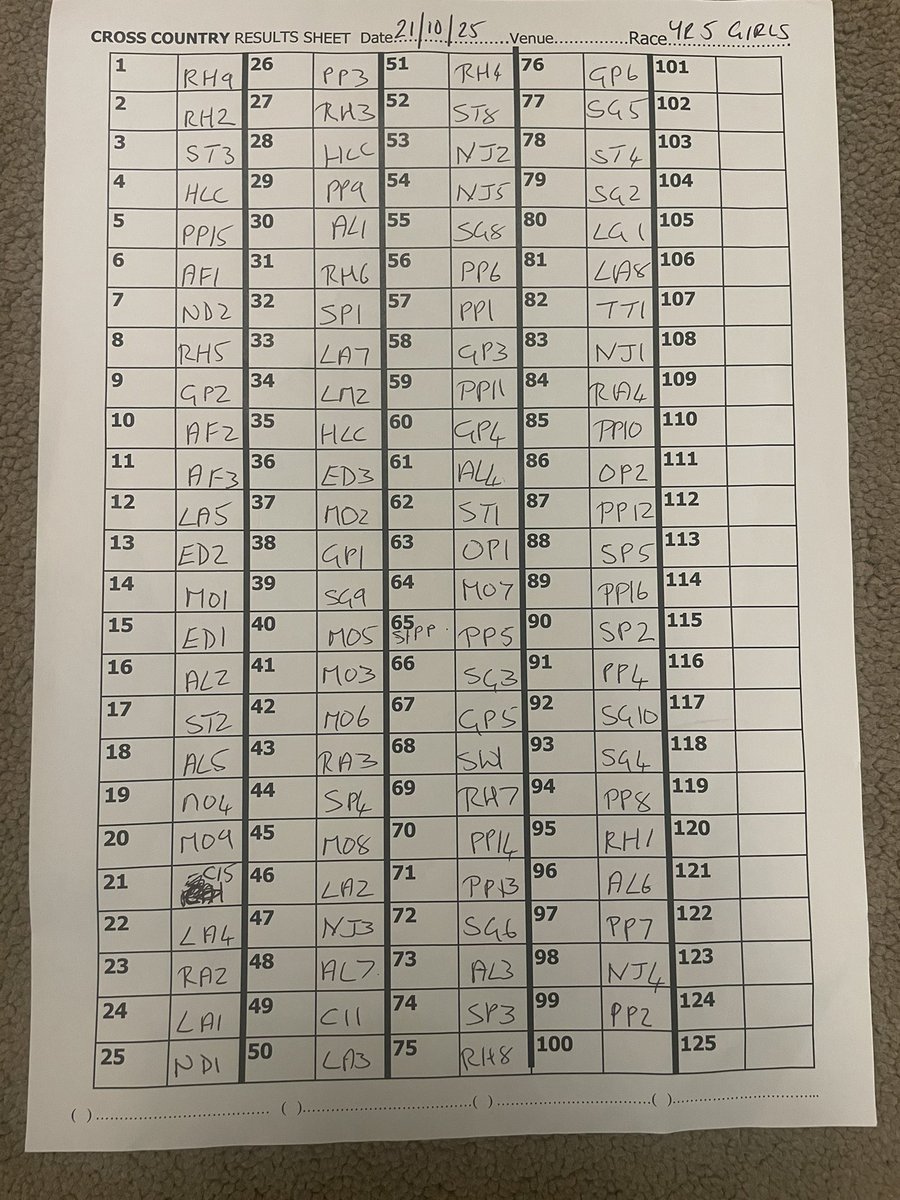 CROSS COUNTRY RESULTS SHEET Date 21/10/25 Venue............. Race YR5 GIRLS
1 RH9 26 PP3 51 RH4 76 GP6 101
2 RH2 27 RH3 52 ST8 77 SG5 102
3 ST3 28 HLC 53 NJ2 78 ST4 103
4 HLC 29 PP9 54 NJ5 79 SG2 104
5 PP15 30 AL1 55 SG8 80 LG1 105
6 AF1 31 RH6 56 PP6 81 LA8 106
7 ND2 32 SP1 57 PP1 82 TT1 107
8 RH5 33 LA7 58 GP3 83 NJ1 108
9 GP2 34 LM2 59 PP11 84 RA4 109
10 AF2 35 HLC 60 GP4 85 PP10 110
11 AF3 36 ED3 61 AL4 86 OP2 111
12 LA5 37 MO2 62 ST1 87 PP12 112
13 ED2 38 GP1 63 OP1 88 SP5 113
14 MO1 39 SG9 64 MO7 89 PP16 114
15 ED1 40 MO5 65 PP5 90 SP2 115
16 AL2 41 MO3 66 SG3 91 PP4 116
17 ST2 42 MO6 67 GP5 92 SG10 117
18 AL5 43 RA3 68 SW1 93 SG4 118
19 MO4 44 SP4 69 RH7 94 PP8 119
20 MO9 45 MO8 70 PP14 95 RH1 120
21 CI5 46 LA2 71 PP13 96 AL6 121
22 LA4 47 NJ3 72 SG6 97 PP7 122
23 RA2 48 AL7 73 AL3 98 NJ4 123
24 LA1 49 CI1 74 SP3 99 PP2 124
25 ND1 50 LA3 75 RH8 100 125
( )............. ( )............. ( )............. ( ).............